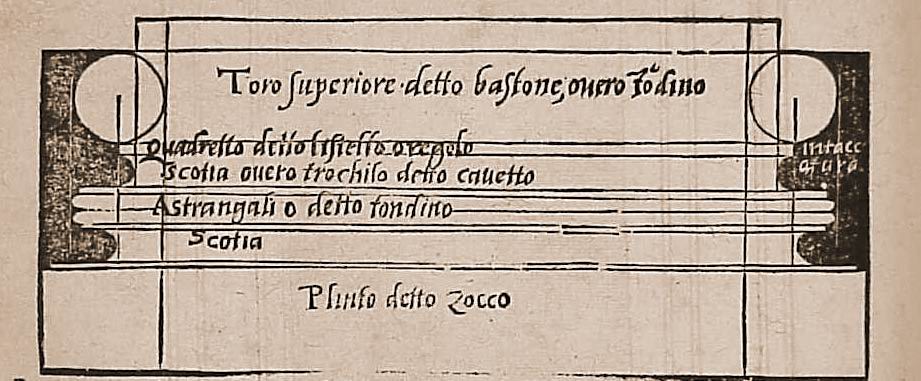 Toro superiore detto bastone, ouero Tōdino
Quadretto detto listello o regolo
Intacc
atura
Scotia ouero trochilo detto cauetto
Astrangali o detto tondino
Scotia
Plinto detto Zocco